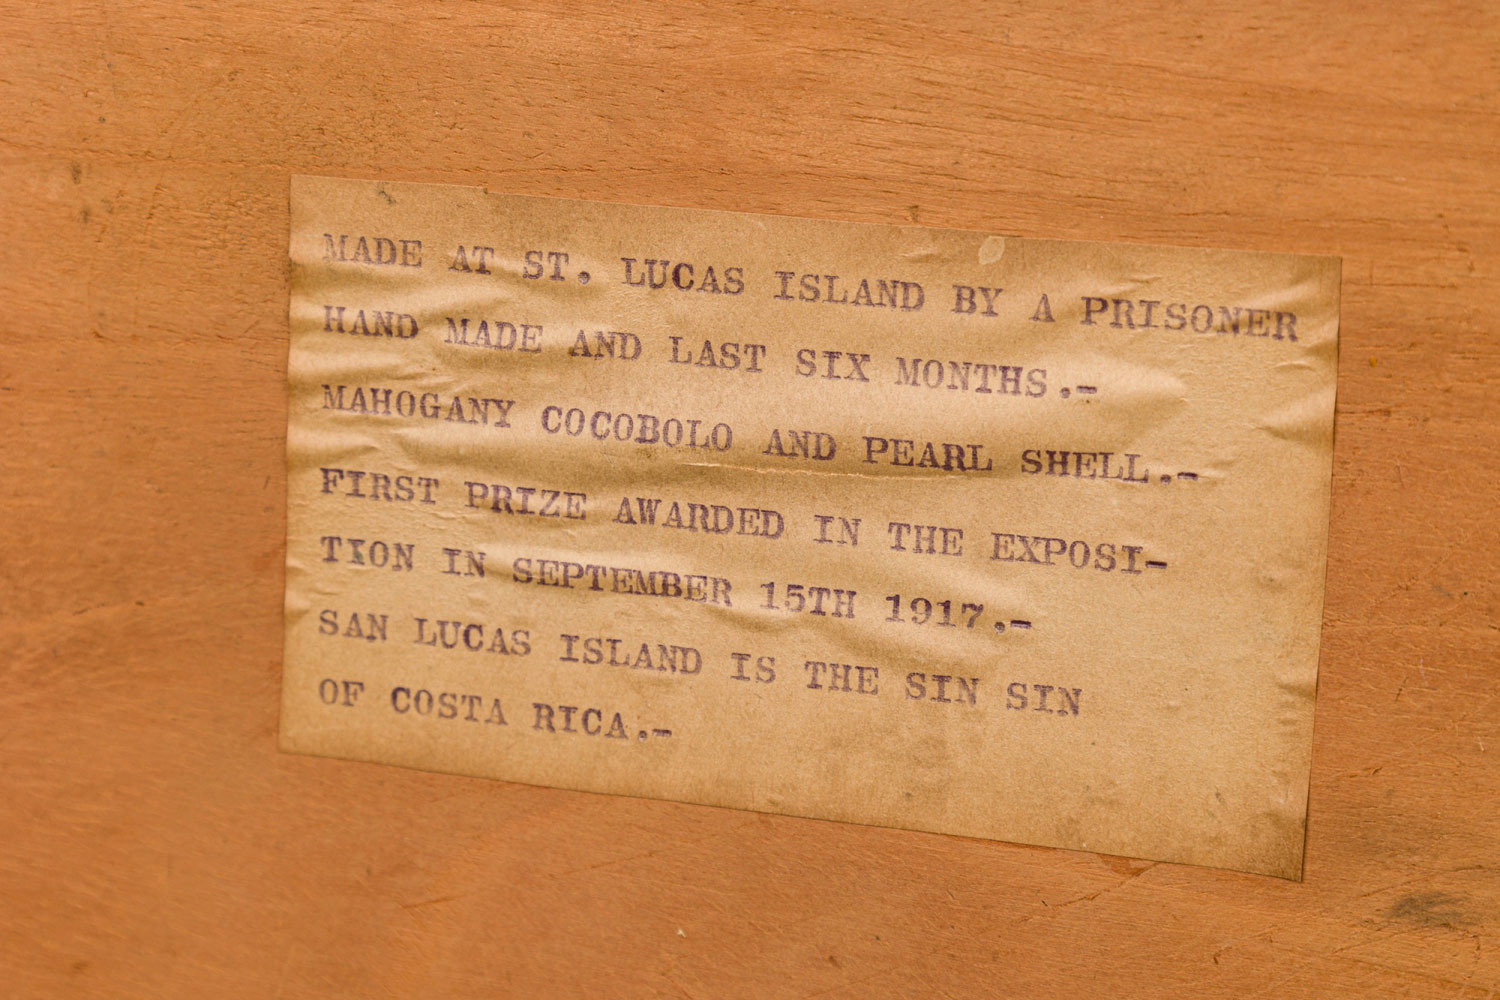 MADE AT ST. LUCAS ISLAND BY A PRISONER
HAND MADE AND LAST SIX MONTHS.-
MAHOGANY COCOBOLO AND PEARL SHELL.-
FIRST PRIZE AWARDED IN THE EXPOSI-
TION IN SEPTEMBER 15TH 1917.-
SAN LUCAS ISLAND IS THE SIN SIN
OF COSTA RICA.-